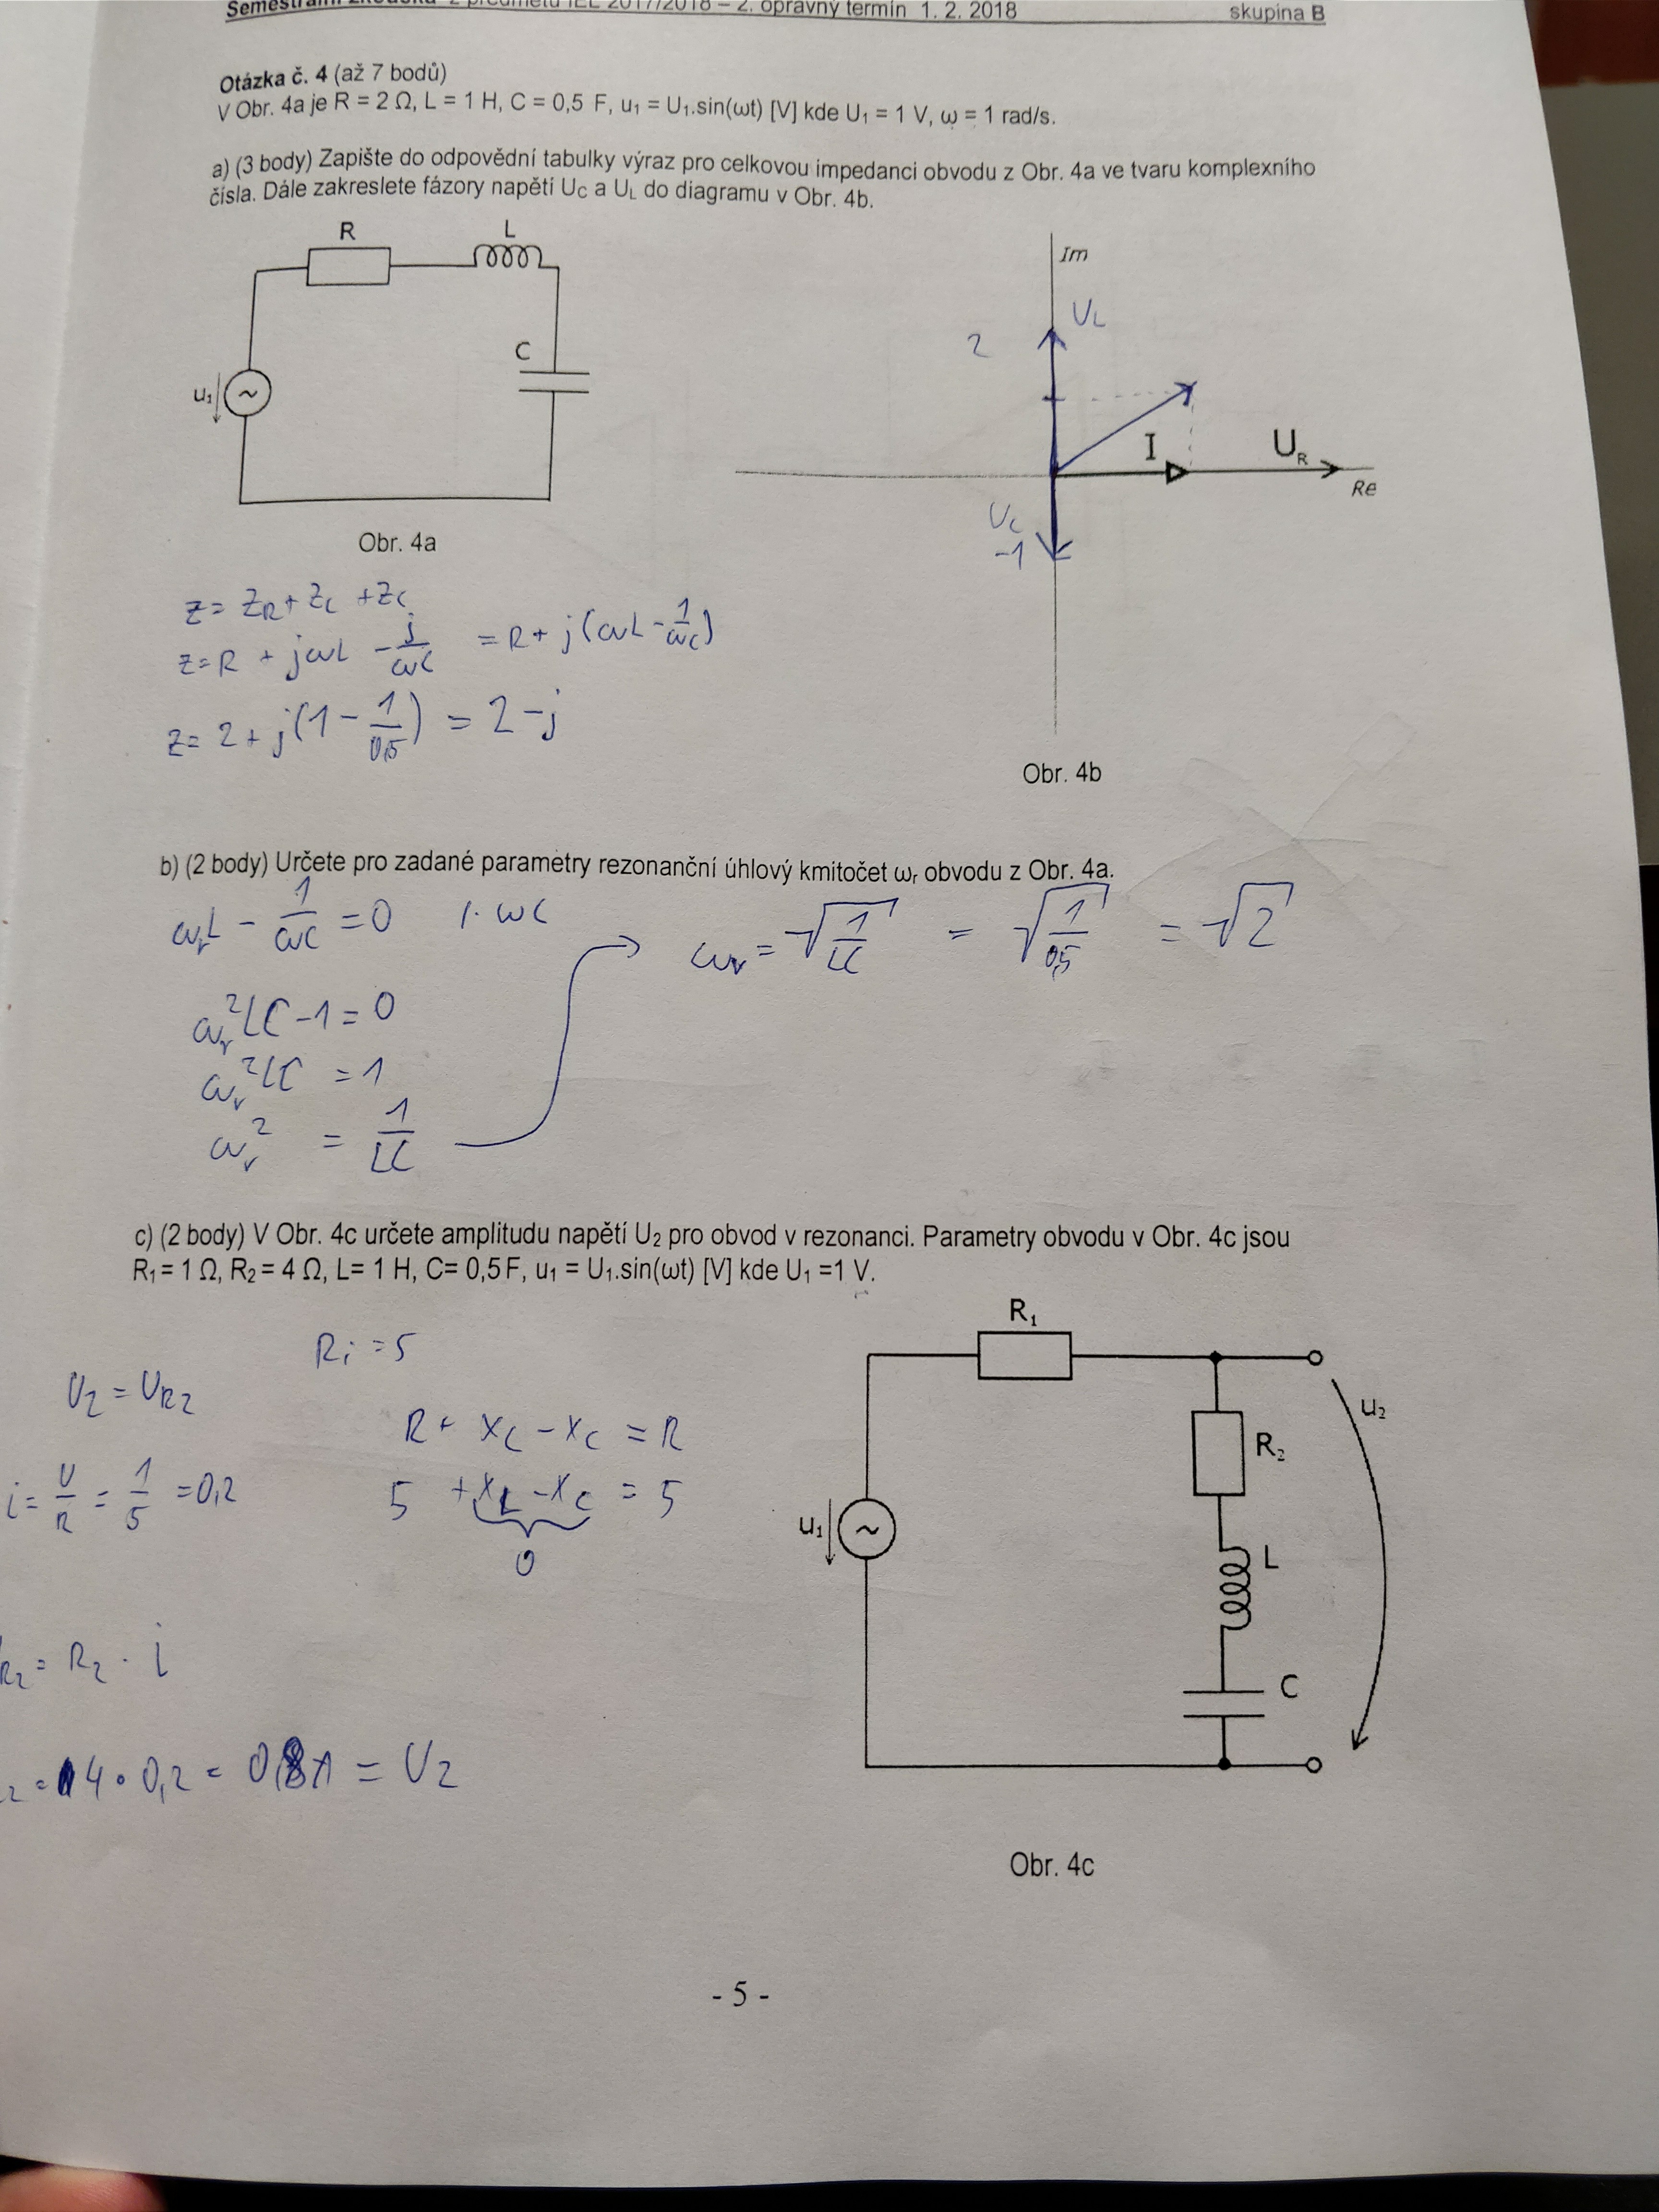 Semestrální zkouška z předmětu IEL 2017/2018 – 2. opravný termín 1. 2. 2018 skupina B
Otázka č. 4 (až 7 bodů)
V Obr. 4a je R = 2 Ω, L = 1 H, C = 0,5 F, u₁ = U₁.sin(ωt) [V] kde U₁ = 1 V, ω = 1 rad/s.
a) (3 body) Zapište do odpovědní tabulky výraz pro celkovou impedanci obvodu z Obr. 4a ve tvaru komplexního
čísla. Dále zakreslete fázory napětí UC a UL do diagramu v Obr. 4b.
R
L
C
u₁
~
Obr. 4a
Im
UL
2
I
UR
Re
UC
-1
Obr. 4b
Z= ZR+ ZL +ZC
Z=R + jωL - j/ωC = R+ j(ωL - 1/ωC)
Z= 2+ j(1 - 1/0,5) = 2-j
b) (2 body) Určete pro zadané parametry rezonanční úhlový kmitočet ωr obvodu z Obr. 4a.
ωrL - 1/ωC = 0 /· ωC
ωr = √(1/LC) = √(1/0,5) = √2
ωr²LC -1 = 0
ωr²LC = 1
ωr² = 1/LC
c) (2 body) V Obr. 4c určete amplitudu napětí U₂ pro obvod v rezonanci. Parametry obvodu v Obr. 4c jsou
R₁ = 1 Ω, R₂ = 4 Ω, L= 1 H, C= 0,5 F, u₁ = U₁.sin(ωt) [V] kde U₁ =1 V.
Ri = 5
U2 = UR2
R + XL - XC = R
i = U/R = 1/5 = 0,2
5 + XL - XC = 5
0
R2 = R2 · i
2 = 4 · 0,2 = 0,8 = U2
R₁
R₂
L
C
u₁
~
u₂
Obr. 4c
- 5 -